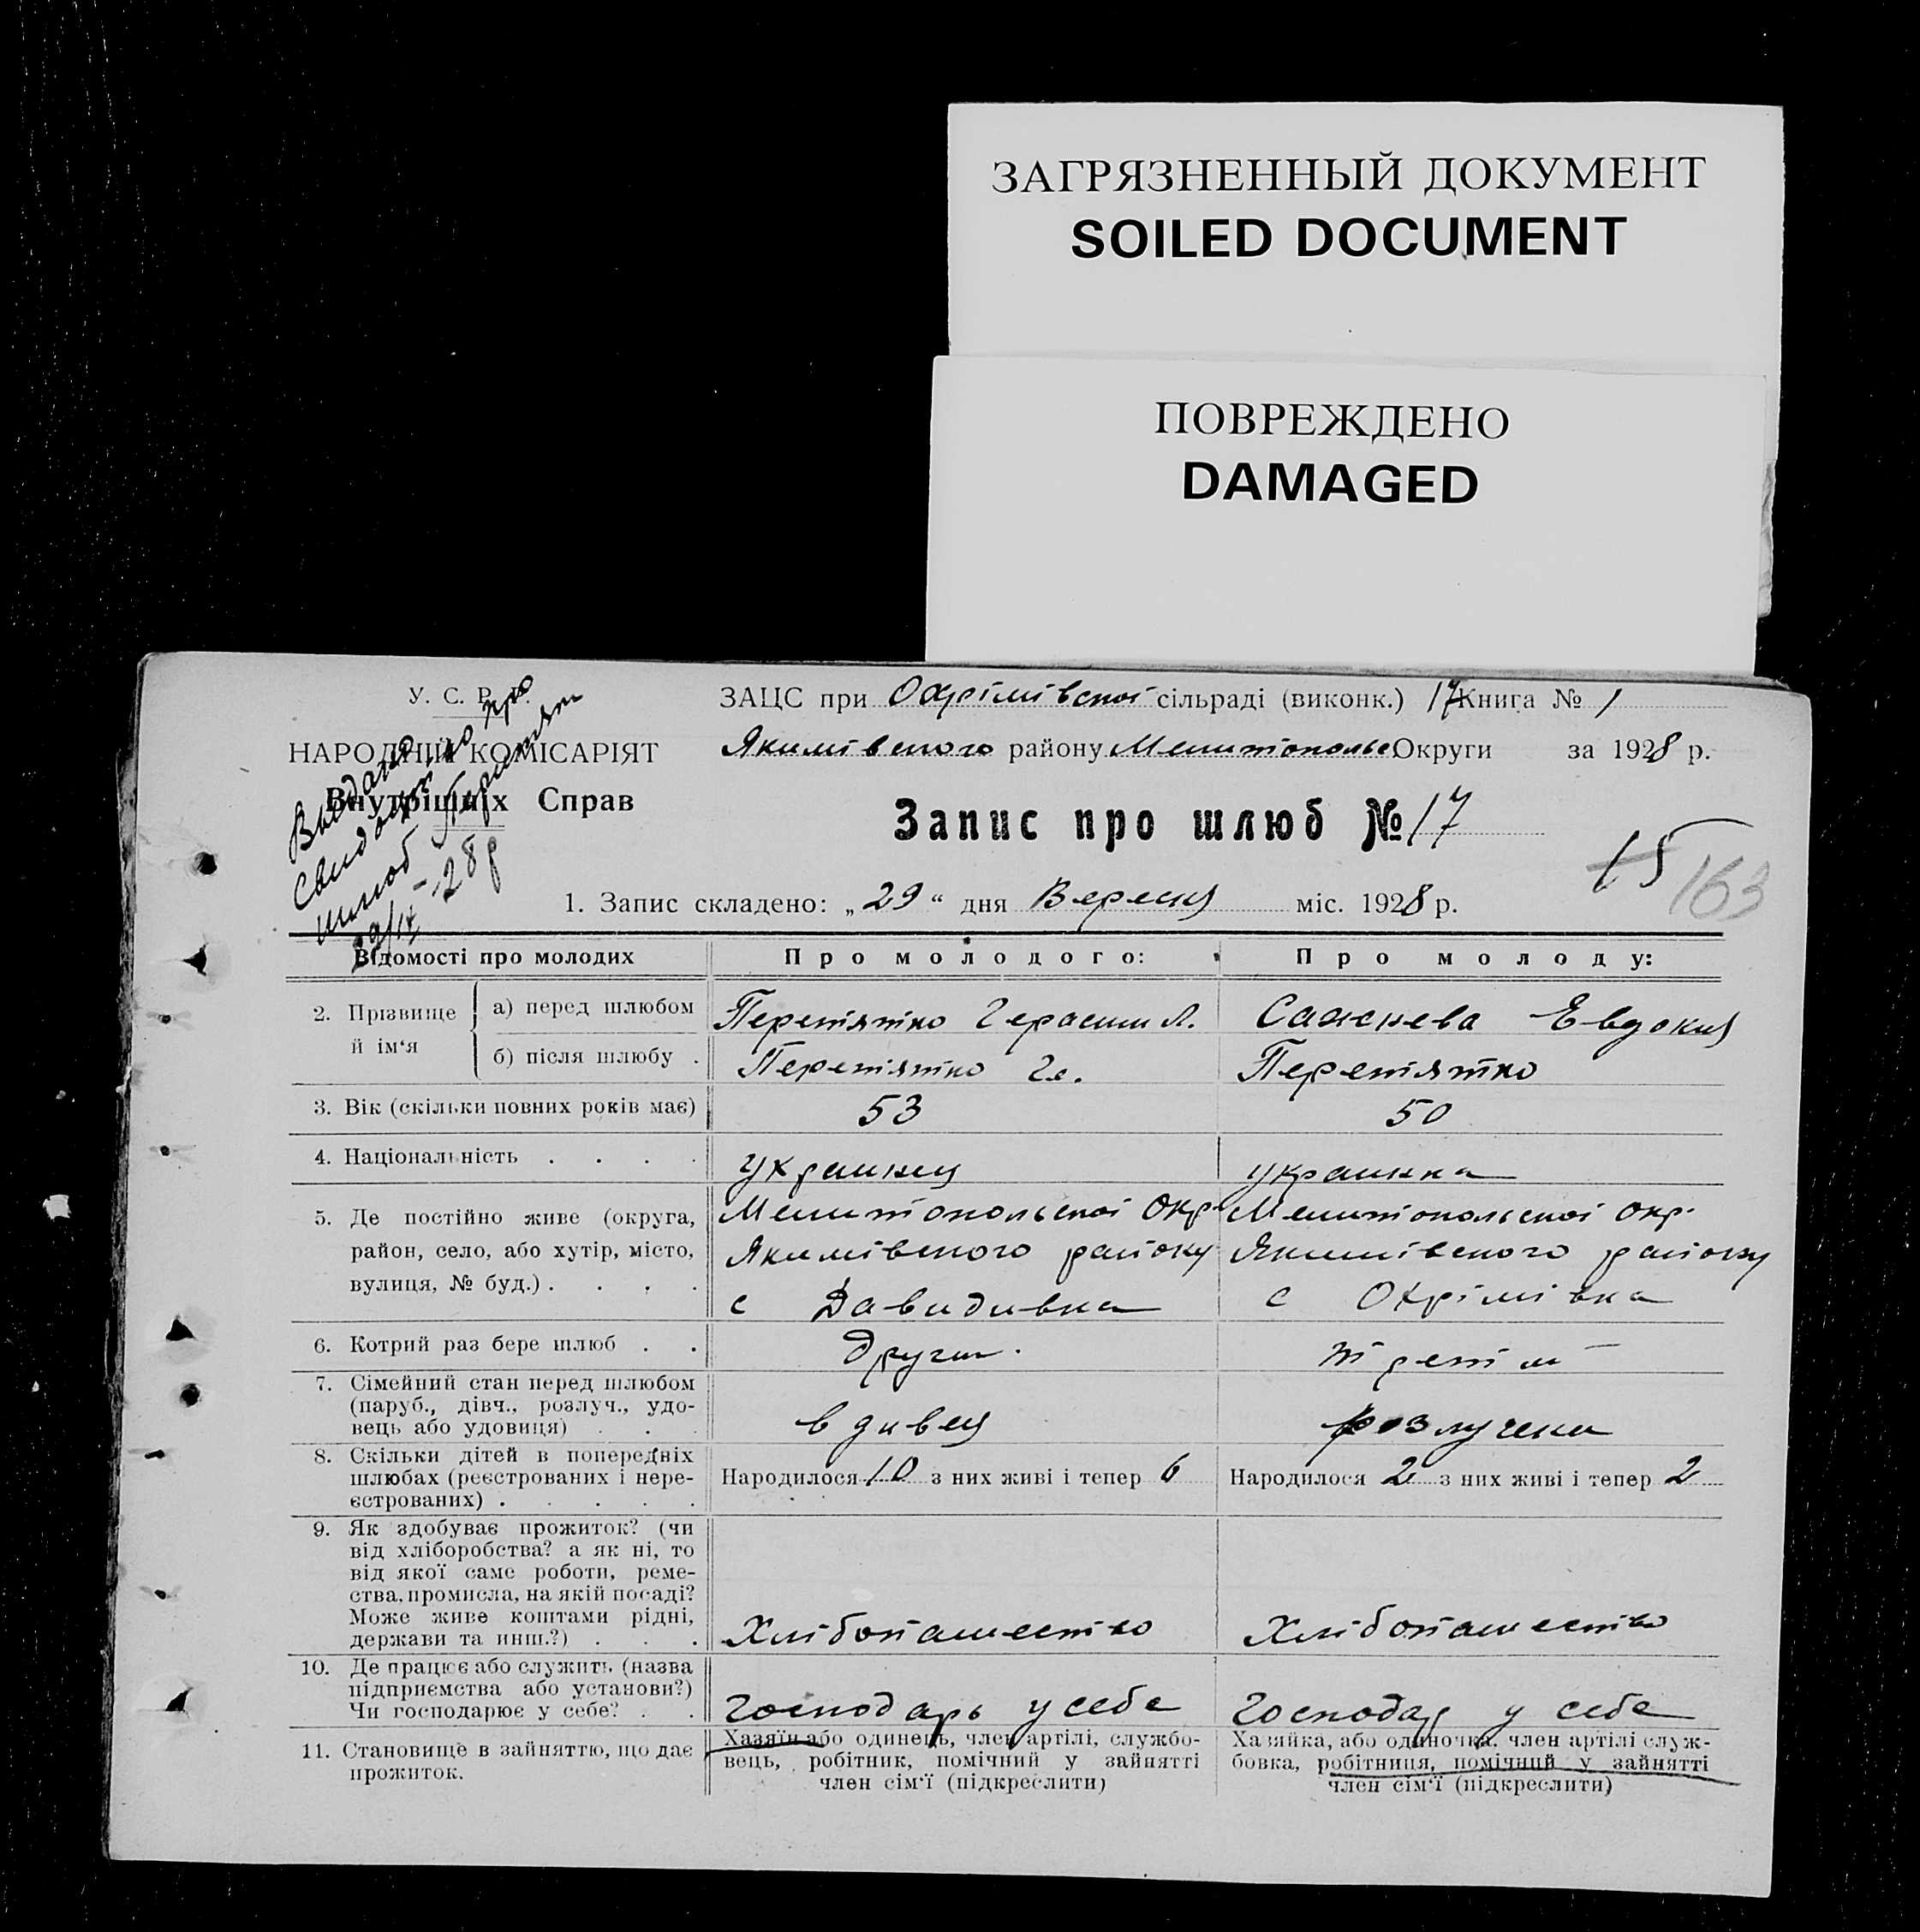 ЗАГРЯЗНЕННЫЙ ДОКУМЕНТ
SOILED DOCUMENT
ПОВРЕЖДЕНО
DAMAGED
У. С. Р. Р.
НАРОДНІЙ КОМІСАРІЯТ
Внутрішніх Справ
Выдано
свидоцт. по про
шлюб
29/IX - 28 р
ЗАЦС при Охрімівскої сільраді (виконк.) 17 Книга № 1
Якимівского району Мелитопольс Округи за 1928 р.
Запис про шлюб № 17
15 163
1. Запис складено: „29“ дня Вересня міс. 1928 р.
Відомості про молодих
Про молодого:
Про молоду:
2. Прізвище й ім‘я
а) перед шлюбом
Перетятко Герасим Л.
Сажнева Евдокия
б) після шлюбу .
Перетятко Ге.
Перетятко
3. Вік (скільки повних років має)
53
50
4. Національність . . . .
украинец
украинка
5. Де постійно живе (округа,
район, село, або хутір, місто,
вулиця, № буд.) . . . .
Мелитопольскої Окр.
Якимівского району
с Давидивка
Мелитопольскої Окр.
Якимівского району
с Охрімівка
6. Котрий раз бере шлюб . .
други.
третій
7. Сімейний стан перед шлюбом
(паруб., дівч., розлуч., удо-
вець або удовиця) . . .
вдивец
розлучена
8. Скільки дітей в попередніх
шлюбах (реєстрованих і нере-
єстрованих) . . . . .
Народилося 10 з них живі і тепер 6
Народилося 2 з них живі і тепер 2
9. Як здобуває прожиток? (чи
від хліборобства? а як ні, то
від якої саме роботи, реме-
ства, промисла, на якій посаді?
Може живе коштами рідні,
держави та инш.?) . . .
Хлібопашество
Хлібопашество
10. Де працює або служить (назва
підприємства або установи?)
Чи господарює у себе? . .
Господарь у себе
Господар у себе
11. Становище в зайняттю, що дає
прожиток.
Хазяїн або одинець, член артілі, службо-
вець, робітник, помічний у зайнятті
член сім‘ї (підкреслити)
Хазяйка, або одиночка, член артілі служ-
бовка, робітниця, помічний у зайнятті
член сім‘ї (підкреслити)